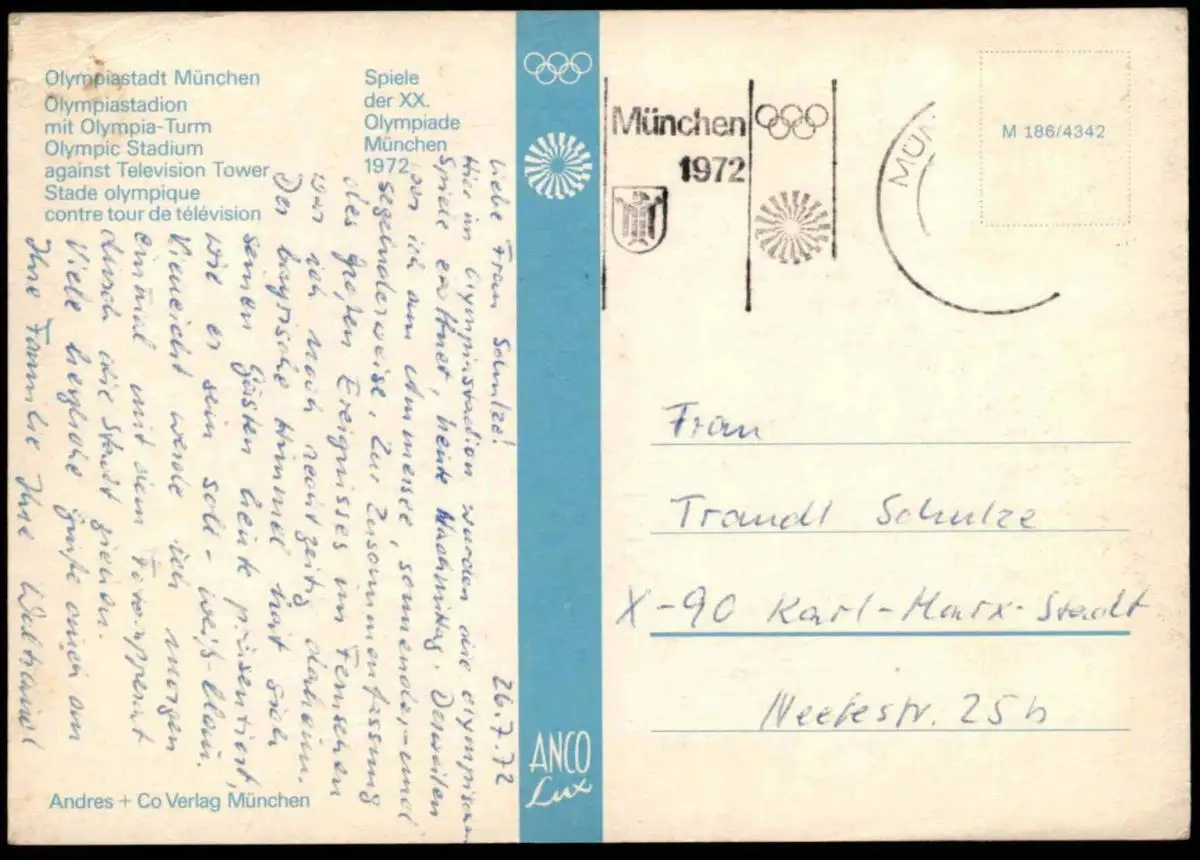 Olympiastadt München
Olympiastadion
mit Olympia-Turm
Olympic Stadium
against Television Tower
Stade olympique
contre tour de télévision
Spiele
der XX.
Olympiade
München
1972
26.7.72
Liebe Frau Schulze!
Hier im Olympiastadion wurden die olympischen
Spiele eröffnet, heute Nachmittag. Derweilen
war ich am Ammersee, sonnender- und
segelnderweise. Zur Zusammenfassung
des großen Ereignisses im Fernsehen
war ich noch rechtzeitig daheim.
Der bayrische Himmel hat sich
seinen Gästen heute präsentiert,
wie er sein soll - weiß-blau.
Vielleicht werde ich morgen
einmal mit dem Fotoapparat
durch die Stadt ziehen.
Viele herzliche Grüße auch an
Ihre Familie Ihre Waltraud
Andres + Co Verlag München
ANCO
Lux
München
1972
MÜN
M 186/4342
Frau
Traudl Schulze
X-90 Karl-Marx-Stadt
Neefestr. 25b